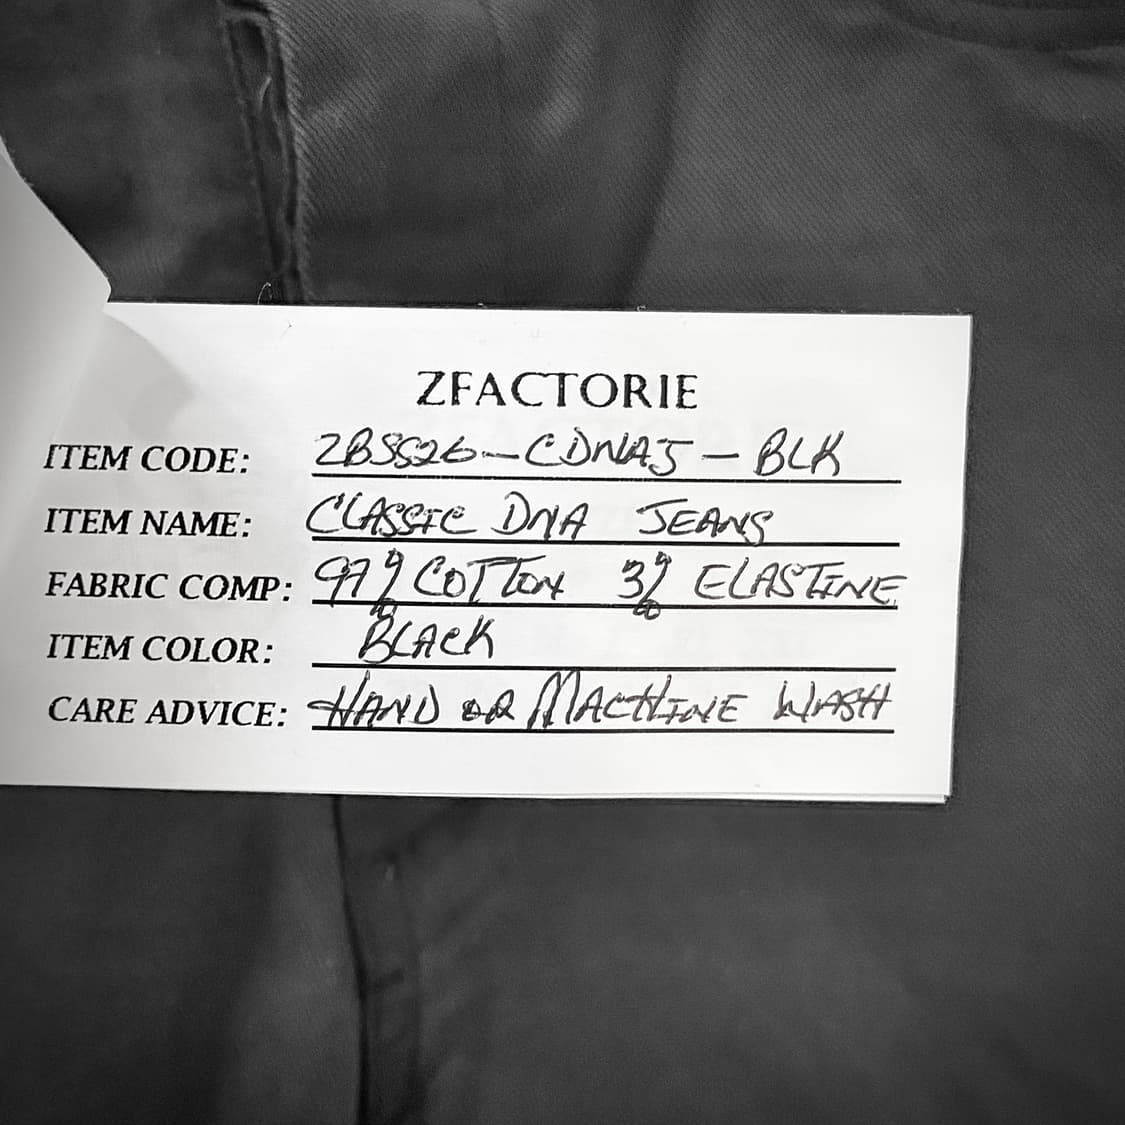 ZFACTORIE
ITEM CODE: ZBSS26-CDNAJ-BLK
ITEM NAME: CLASSIC DNA JEANS
FABRIC COMP: 97% COTTON 3% ELASTINE
ITEM COLOR: BLACK
CARE ADVICE: HAND OR MACHINE WASH